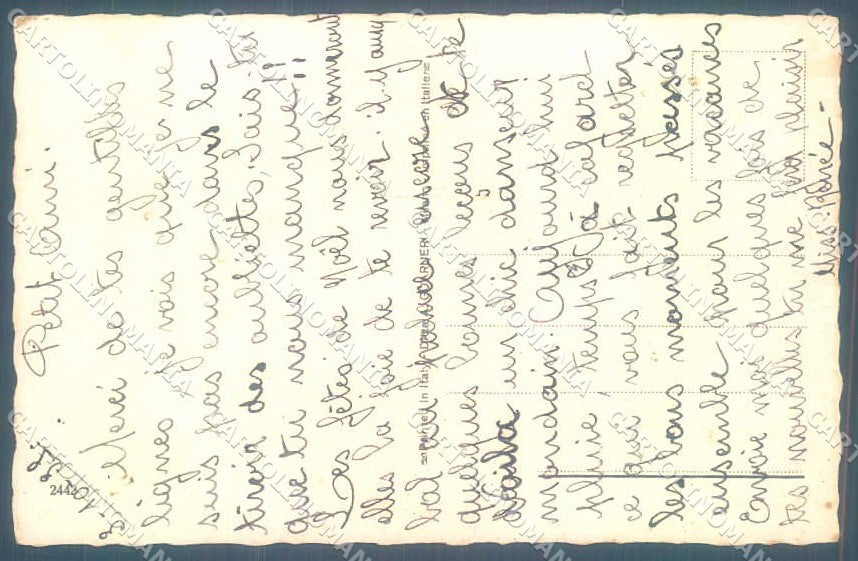 3-10-51
Petit ami.
Merci de tes gentilles
lignes je vois que je ne
suis pas encore dans le
tiroir des oubliettes, Sais-tu
que tu nous manque!!
Les fêtes de Noël nous donneront
elles la joie de te revoir. il y aura
bal et
quelques bonnes leçons de te
un chic danseur
mondain. Aujourd'hui
pluie, temps à cafard
ce qui vous fait regretter
les bons moments passés
ensemble pour les vacances
Envoie moi quelques fois de
tes nouvelles tu me fra plaisir
Printed in Italy
2442
CARTOLINOMANIA